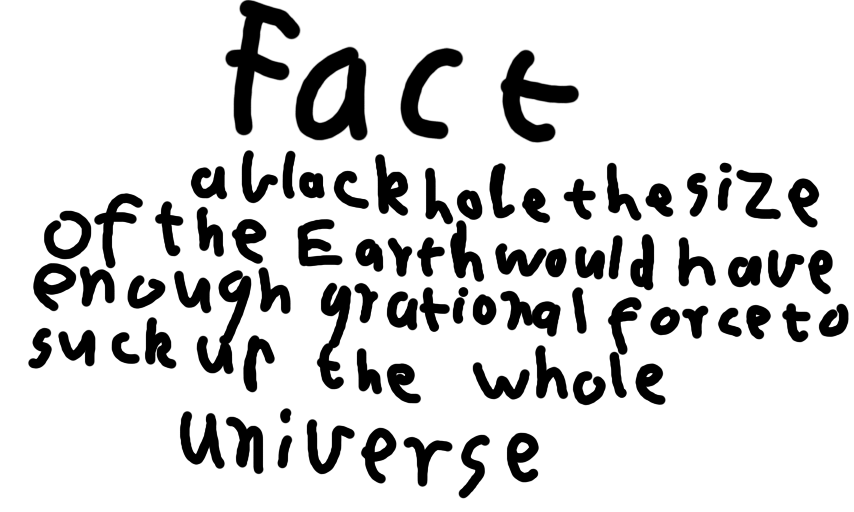 Fact
a black hole the size
of the Earth would have
enough grational force to
suck up the whole
universe